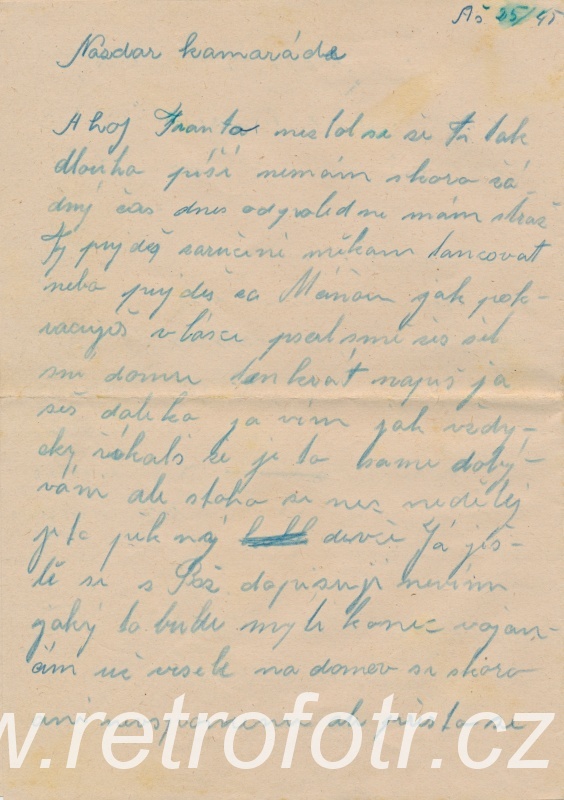 Aš 25/45
Nazdar kamaráde
Ahoj Franto nezlob se že Ti tak
dlouho píší nemám skoro žá-
dný čas dnes odpoledne mám stráž
Ty pujdeš zaručeně někam tancovat
nebo pujdeš za Máňou jak pok-
račuješ v lásce psal sme žes šel
sní domu tenkrát napiš ja
seš daleko ja vím jak vždy-
cky řikals že je to samé dobý-
vám ale stoho si nec nedělej
je to pěkný děvče Já ješ-
tě si s Bož dopisuji nevím
jaký to bude mýt konec vojan-
čím už vesele na domov si skoro
ani nevspomenu ale přesto se
www.retrofotr.cz